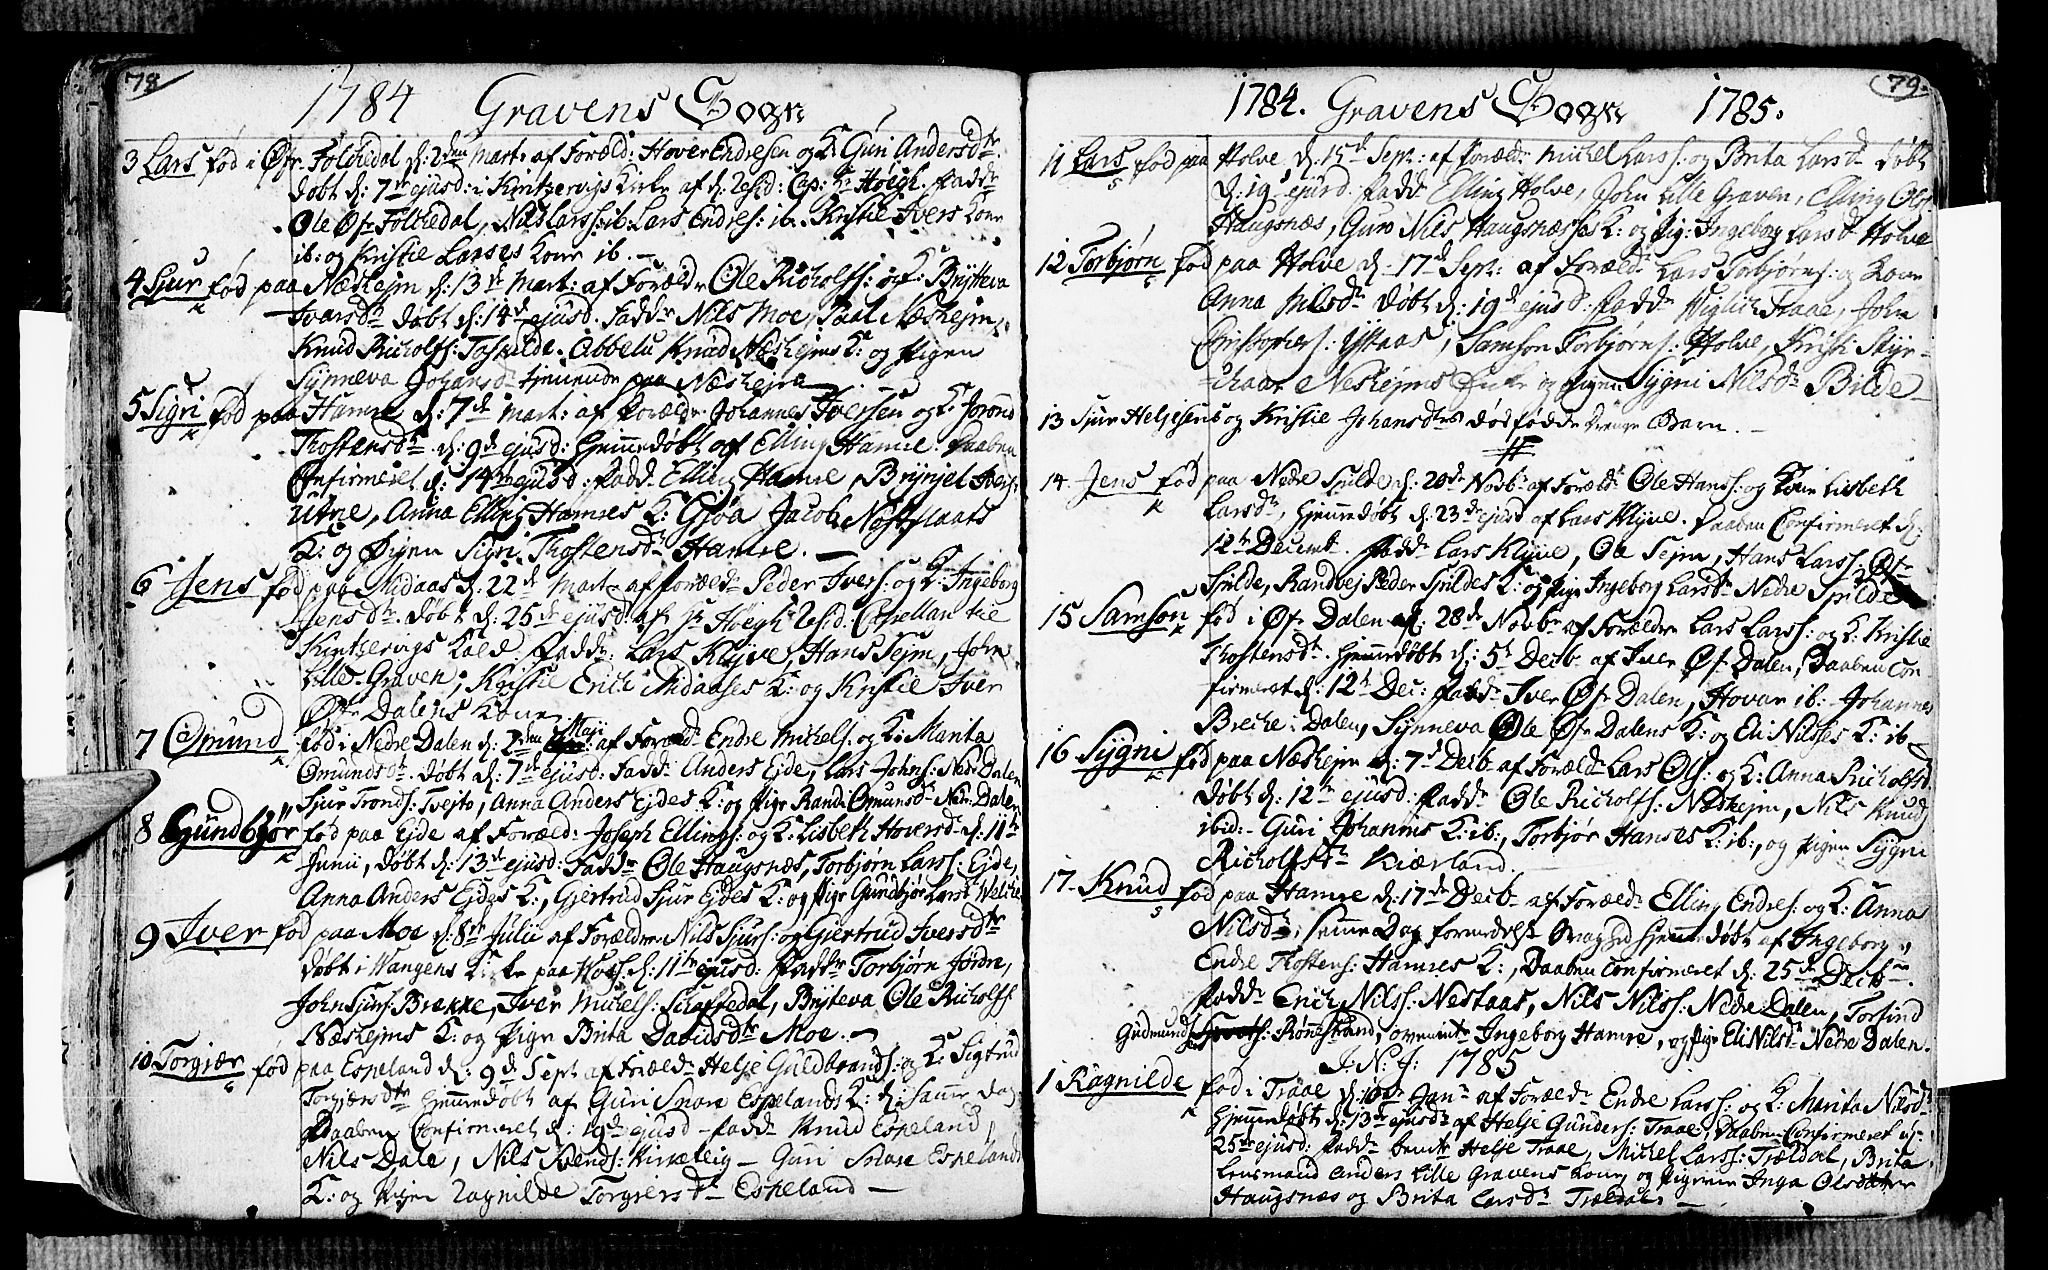 78
1784 Gravens Sogn
3 Lars fød i Øfr. Folchedal d: 2den Mart: af Foræld: Hover Endresen og K: Guri Andersdtr.
døbt d: 7de ejusd: i Kintzervigs Kirke af d: Resid: Cap: Hr Høegh. Faddr
Ole Øfr Folchedal, Nils Larss: ib: Lars Endres: ib. Kristie Ivers Kone
ib: og Kristie Larses Kone ib. —
4 Sjur fød paa Næshejm d: 13de Mart: af Forældr Ole Richolfs: og K: Brÿtteva
Ivarsdtr døbt d: 14de ejusd. Faddr Nils Moe, Paal Næshejm,
Knud Richolfs: Abbelu Knud Næshejms K: og Pigen
Sÿnneva Johansdr tjenende paa Næshejm
5 Sigri fød paa Hamre d: 7de Mart: af Forældr Johannes Iversen og K: Joron
Thostensdtr. d: 9de ejusd: Hjemmedøbt af Elling Hamre. Daaben
Confirmeret d: 14de ejusd: Faddr Elling Hamre, Brÿnjel Ivers:
Utne, Anna Elling Hamres K: Gjøa Jacob
K: og Pigen Sigri Thostensdr Hamre. —
6 Jens fød paa Midaas d: 22de Mart: af Forældr Peder Ivers: og K: Ingeborg
Jensdtr. Døbt d: 25de ejusd: af Hr Høegh Resid: Capellan til
Kintzervigs Kald Faddr: Lars Klÿve, Hans Sejm, John
Lille-Graven, Kristie Erich Midaases K: og Kristie Iver
Øfr Dalens Kone
7 Omund fød i Nedre Dalen d: 2den Maji af Foræld Endre Michels: og K: Marita
Omundsdtr. døbt d: 7de ejusd: Faddr Anders Ejde, Lars Johns: Nedr Dalen
Sjur Tronds: Tvejto, Anna Anders Ejdes K: og Pige Randi Omundsdr Nedr Dalen
8 Gundbjør fød paa Ejde af Foræld: Joseph Ellings: og K: Lisbeth Hoversdr d: 11te
Junii, døbt d: 13de ejusd: Faddr Ole Haugsnæs, Torbjørn Larss: Ejde,
Anna Anders Ejdes K:, Gjertrud Sjur Ejdes K: og Pige Gundbjør Larsdr
9 Iver fød paa Moe d: 8de Julii af Forældre Nils Sjurs: og Gjertrud Iversdtr
døbt i Wangens Kirke paa Woss: d: 11te ejusd: Faddr Torbjørn Jørdre,
John Sjurs: Brække, Iver Michels: Brÿteva Ole Richolfs
Næshejms K: og Pige Brita Davidsdtr Moe. —
10 Torgjær fød paa Espeland d: 9de Sept: af Forældr Helje Guldbrands: og K: Sigtrud
Torgjærsdtr Hjemmedøbt af Guri Snare Espelands K: d: Samme dag
Daaben Confirmeret d: 19de ejusd — Faddr Knud Espeland,
Nils Dale, Nils — Guri Snare Espelands
K: og Pigen Ragnilde Torgiersdr Espeland —
79
1784. Gravens Sogn 1785.
11 Lars fød paa Holve d: 15de Sept: af Forældr Michel Larss: og Brita Larsdr døbt
d: 19de ejusd. Faddr Elling Holve, John Lille Graven, Elling Ols:
Haugsnæs, Guro Nils Haugsnæsses K: og Pig: Ingeborg Larsdr Holve
12 Torbjørn fød paa Holve d. 17de Sept: af Forældr Lars Torbjørns: og Kone
Anna Nilsdtr Døbt d: 19de ejusd. Faddr Traae, John
Christophers: Samson Torbjørns: Holve, Kristi
Neshejms og Pigen Sÿgni Nilsdr Bilde
13 Sjur Heljesens og Kristie Johansdtrs dødfødde Drenge Barn. —
14 Jens fød paa Nedre Spilde d: 20de Novbr af Forældr Ole Hanss: og Kone Lisbeth
Larsdr, Hjemmedøbt d: 23de ejusd af Lars Klÿve. Daaben Confirmeret d:
12te Decembr. Faddr Lars Klÿve, Ole Sejm, Hans Larss: Øfr
Spilde, Randvej Peder Spildes K: og Pige Ingeborg Larsdr Nedre Spilde
15 Samson fød i Øfr Dalen d: 28de Novbr af Forældre Lars Larss: og K: Kristie
Thostensdr. Hjemmedøbt d: 5te Decb: af Iver Øfr Dalen, Daaben Con
firmeret d: 12te Dec: Faddr Iver Øfr Dalen, Hovar ib: Johannes
Breche i Dalen, Sÿnneva Ole Øfr Dalens K: og Eli Nilses K: ib —
16 Sÿgni fød paa Næshejm d: 7de Decb: af Forældr Lars Ols: og K: Anna Richolfsd
Døbt d: 12te ejusd: Faddr Ole Richolfs: Næshejm, Nils Knuds
ibid: — Guri Johannis K: ib:, Torbjør Hanses K: ib:, og Pigen Sÿgni
Richolfsdtr Kiærland
17 Knud fød paa Hamre d: 17de Decb: af Forældr Elling Endres: og K: Anna
Nilsdtr, Samme Dag formedelst Svaghed Hjemmedøbt af Ingeborg,
Endre Thostens: Hamres K:, Daaben Confirmeret d: 25de Decb.
Faddr Erich Nilss: Nestaas, Nils Nilss: Nedre Dalen, Torfind
Gudmunds: Rønnestrand, Ingeborg Hamre, og Pige Eli Nilsdr Nedre Dalen.
I: N: J: 1785
1 Ragnilde fød i Traae d: 10de Janr af Forældr Endre Larss: og K: Marita Nilsdr
Hjemmedøbt d: 13de ejusd: af Helje Gunders: Traae, Daaben Confirmeret d:
25de ejusd: Faddr Helje Traae, Michel Larss: Trældal, Brita
Lensmand Anders Lille Gravens Kone, og Pigerne Inga Olsdatter
Haugsnæs og Brita Larsdr Trældal. —